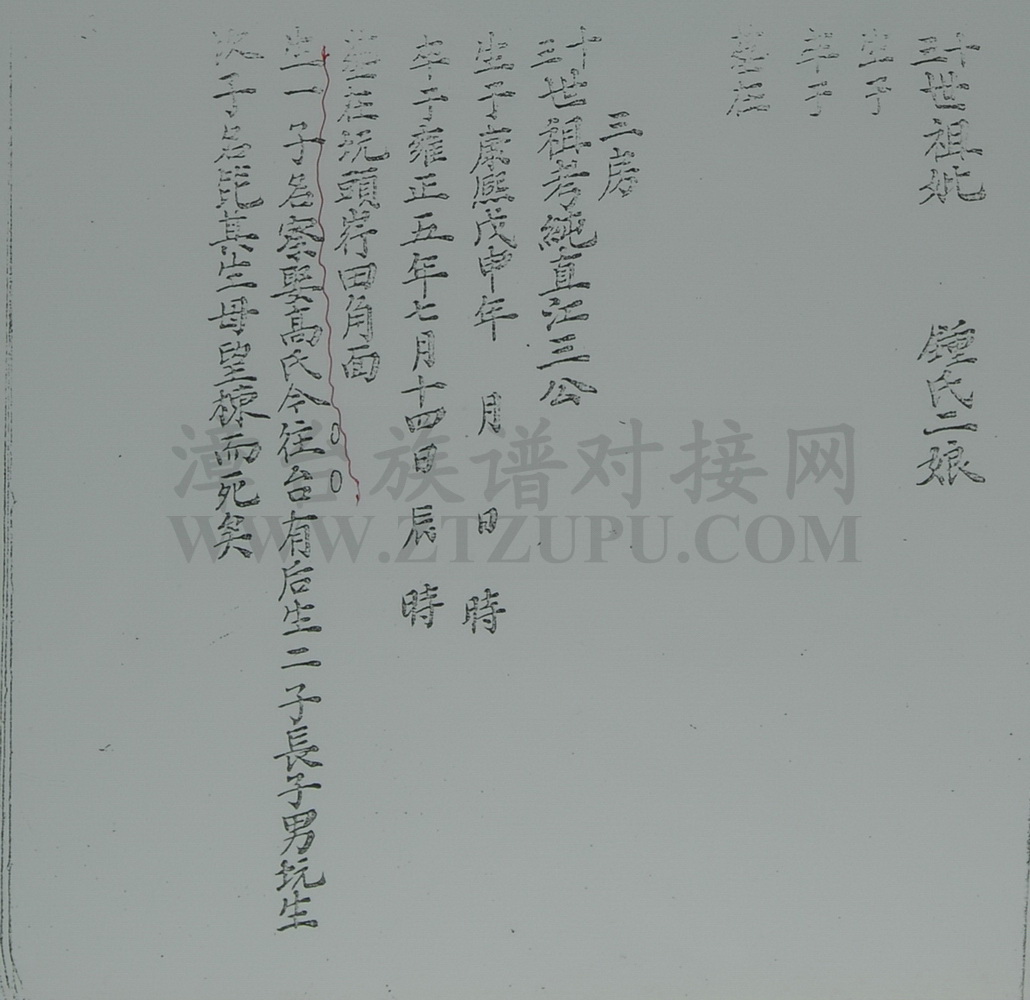 十三世祖妣 鍾氏二娘
生于
卒于
墓在
三房
十三世祖考純直江三公
生于康熙戊申年 月 日 時
卒于雍正五年七月十四日辰 時
墓在坑頭岸田角面
生一子名察娶高氏今往台有后生二子長子男坑生
次子名 其生母望 而死矣
漳台族谱对接网
WWW.ZTZUPU.COM